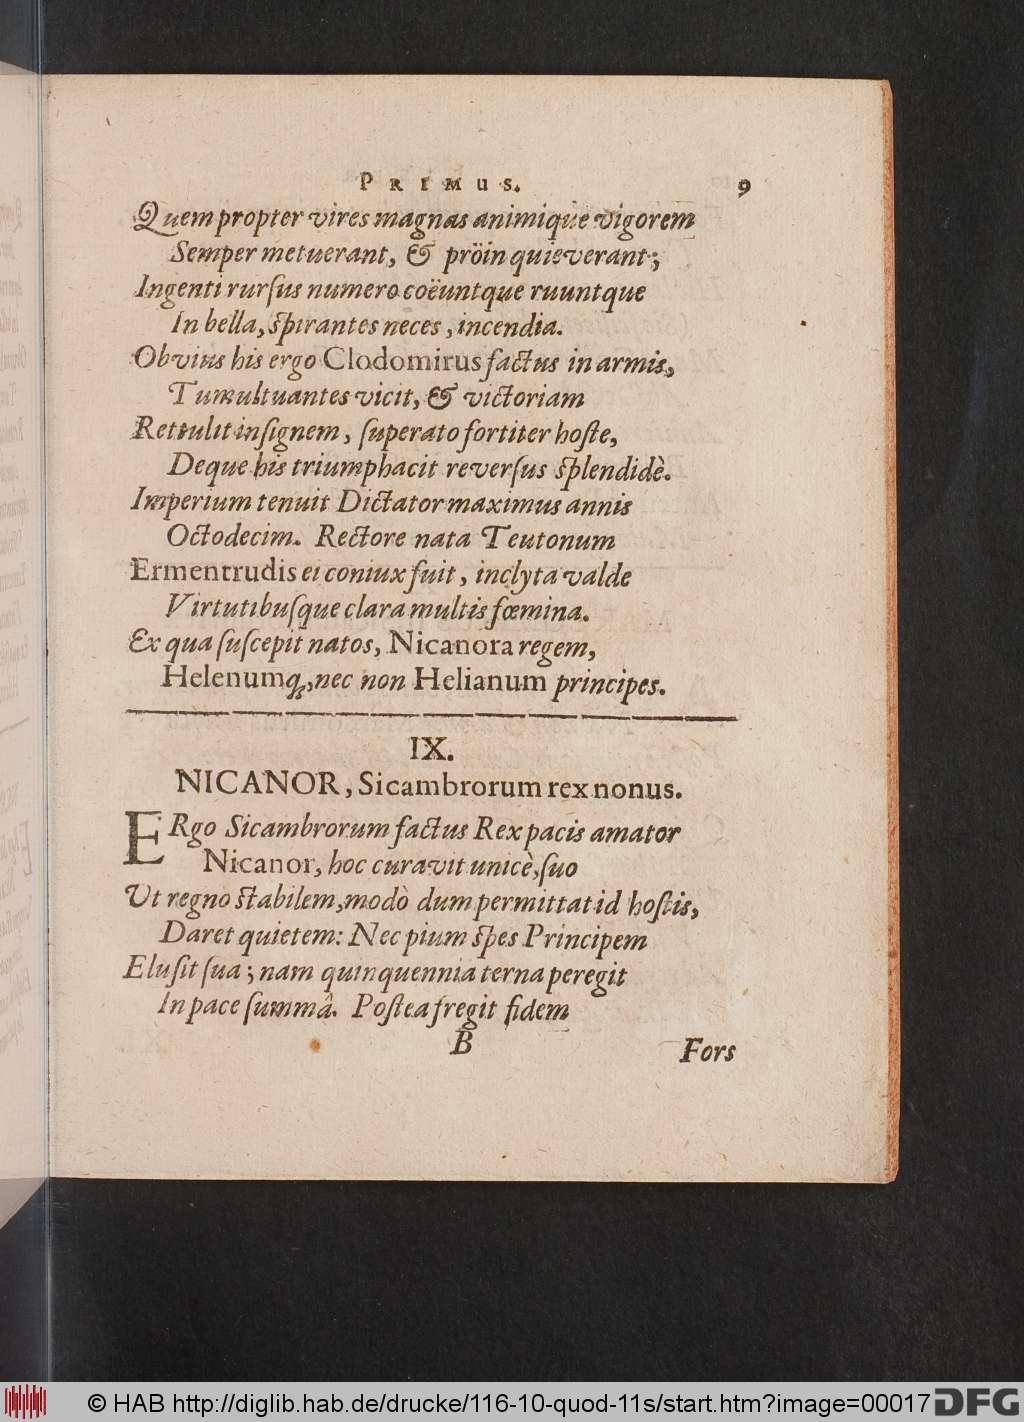 PRIMUS. 9
Quem propter vires magnas animique vigorem
Semper metuerant, & pröin quieverant;
Ingenti rurſus numero coëuntque ruuntque
In bella, ſpirantes neces, incendia.
Obvius his ergo Clodomirus factus in armis,
Tumultuantes vicit, & victoriam
Rettulit inſignem, ſuperato fortiter hoſte,
Deque his triumphacit reverſus ſplendidè.
Imperium tenuit Dictator maximus annis
Octodecim. Rectore nata Teutonum
Ermentrudis ei coniux fuit, inclyta valde
Virtutibuſque clara multis fœmina.
Ex qua ſuſcepit natos, Nicanora regem,
Helenumq́;, nec non Helianum principes.
IX.
NICANOR, Sicambrorum rex nonus.
ERgo Sicambrorum factus Rex pacis amator
Nicanor, hoc curavit unicè, ſuo
Ut regno ſtabilem, modò dum permittat id hoſtis,
Daret quietem: Nec pium ſpes Principem
Eluſit ſua; nam quinquennia terna peregit
In pace ſummâ. Poſtea fregit fidem
B Fors
© HAB http://diglib.hab.de/drucke/116-10-quod-11s/start.htm?image=00017 DFG